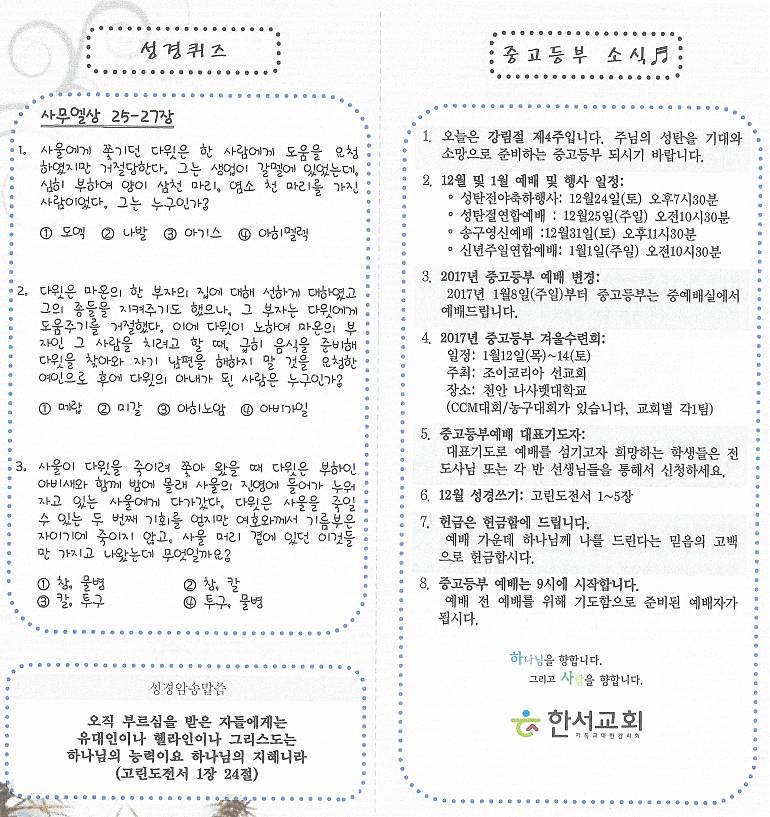 성경퀴즈
사무엘상 25-27장
1. 사울에게 쫓기던 다윗은 한 사람에게 도움을 요청
하였지만 거절당한다. 그는 생업이 갈멜에 있었는데,
심히 부하여 양이 삼천 마리, 염소 천 마리를 가진
사람이었다. 그는 누구인가?
① 도엑 ② 나발 ③ 아기스 ④ 아히멜렉
2. 다윗은 마온의 한 부자의 집에 대해 선하게 대하였고
그의 종들을 지켜주기도 했으나, 그 부자는 다윗에게
도움주기를 거절했다. 이에 다윗이 노하여 마온의 부
자인 그 사람을 치려고 할 때, 급히 음식을 준비해
다윗을 찾아와 자기 남편을 해하지 말 것을 요청한
여인으로 후에 다윗의 아내가 된 사람은 누구인가?
① 메랍 ② 미갈 ③ 아히노암 ④ 아비가일
3. 사울이 다윗을 죽이려 쫓아 왔을 때 다윗은 부하인
아비새와 함께 밤에 몰래 사울의 진영에 들어가 누워
자고 있는 사울에게 다가갔다. 다윗은 사울을 죽일
수 있는 두 번째 기회를 얻지만 여호와께서 기름부은
자이기에 죽이지 않고, 사울 머리 곁에 있던 이것들
만 가지고 나왔는데 무엇일까요?
① 창, 물병 ② 창, 칼
③ 칼, 투구 ④ 투구, 물병
성경암송말씀
오직 부르심을 받은 자들에게는
유대인이나 헬라인이나 그리스도는
하나님의 능력이요 하나님의 지혜니라
(고린도전서 1장 24절)
중고등부 소식♬
1. 오늘은 강림절 제4주입니다. 주님의 성탄을 기대와
소망으로 준비하는 중고등부 되시기 바랍니다.
2. 12월 및 1월 예배 및 행사 일정:
° 성탄전야축하행사: 12월24일(토) 오후7시30분
° 성탄절연합예배 : 12월25일(주일) 오전10시30분
° 송구영신예배 :12월31일(토) 오후11시30분
° 신년주일연합예배: 1월1일(주일) 오전10시30분
3. 2017년 중고등부 예배 변경:
2017년 1월8일(주일)부터 중고등부는 중예배실에서
예배드립니다.
4. 2017년 중고등부 겨울수련회:
일정: 1월12일(목)~14(토)
주최: 조이코리아 선교회
장소: 천안 나사렛대학교
(CCM대회/농구대회가 있습니다, 교회별 각1팀)
5. 중고등부예배 대표기도자:
대표기도로 예배를 섬기고자 희망하는 학생들은 전
도사님 또는 각 반 선생님들을 통해서 신청하세요.
6. 12월 성경쓰기: 고린도전서 1~5장
7. 헌금은 헌금함에 드립니다.
예배 가운데 하나님께 나를 드린다는 믿음의 고백
으로 헌금합시다.
8. 중고등부 예배는 9시에 시작합니다.
예배 전 예배를 위해 기도함으로 준비된 예배자가
됩시다.
하나님을 향합니다.
그리고 사람을 향합니다.
한서교회
기독교대한감리회